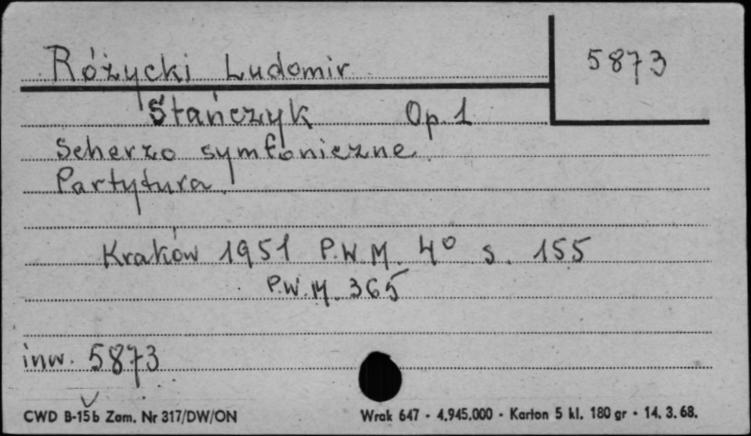 Różycki Ludomir
5873
Stańczyk Op. 1
Scherzo symfoniczne.
Partytura.
Kraków 1951 P.W.M. 4° s. 155
P.W.M. 365
inw. 5873
CWD B-15b Zam. Nr 317/DW/ON
Wrak 647 - 4.945.000 - Karton 5 kl. 180 gr - 14. 3. 68.